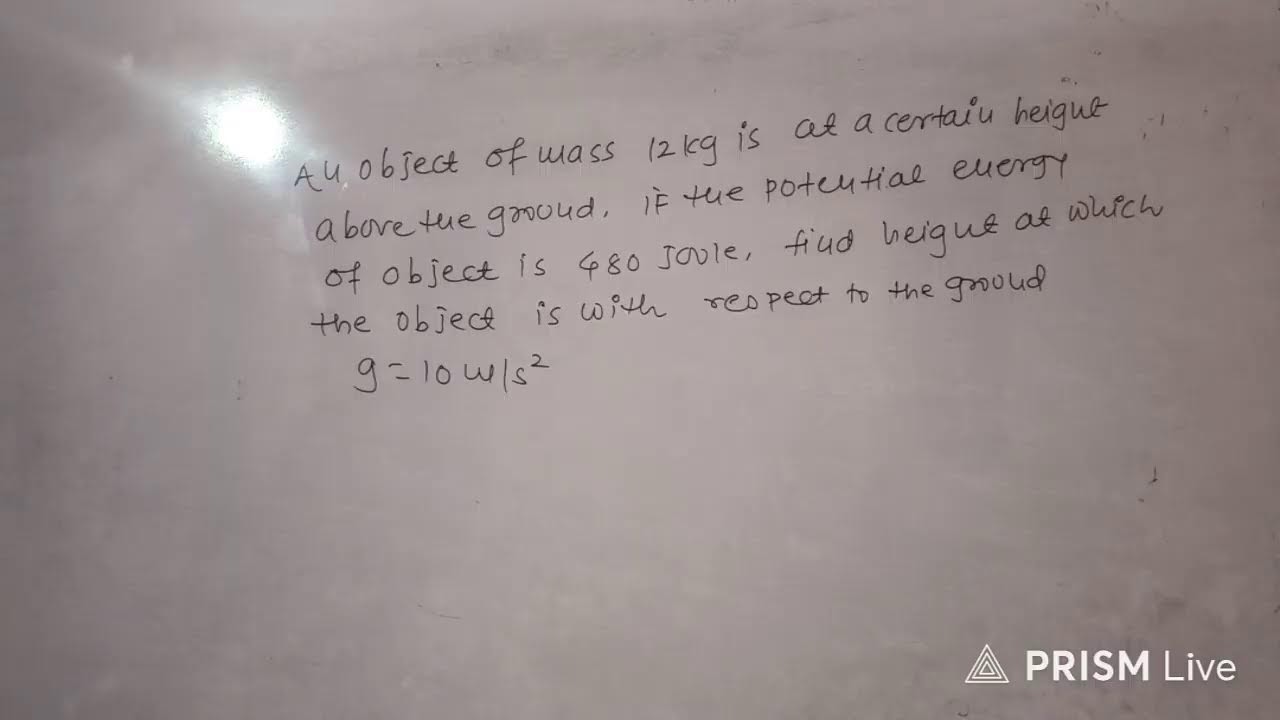 An object of mass 12kg is at a certain height
above the ground. if the potential energy
of object is 480 Joule, find height at which
the object is with respect to the ground
g=10 m/s²
PRISM Live